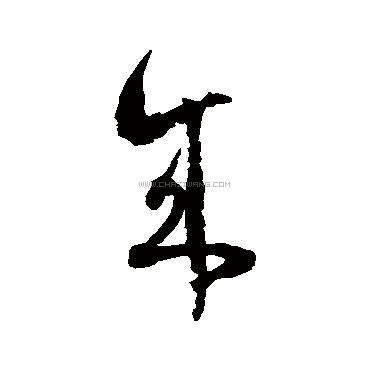 年
WWW.CHAZIWANG.COM